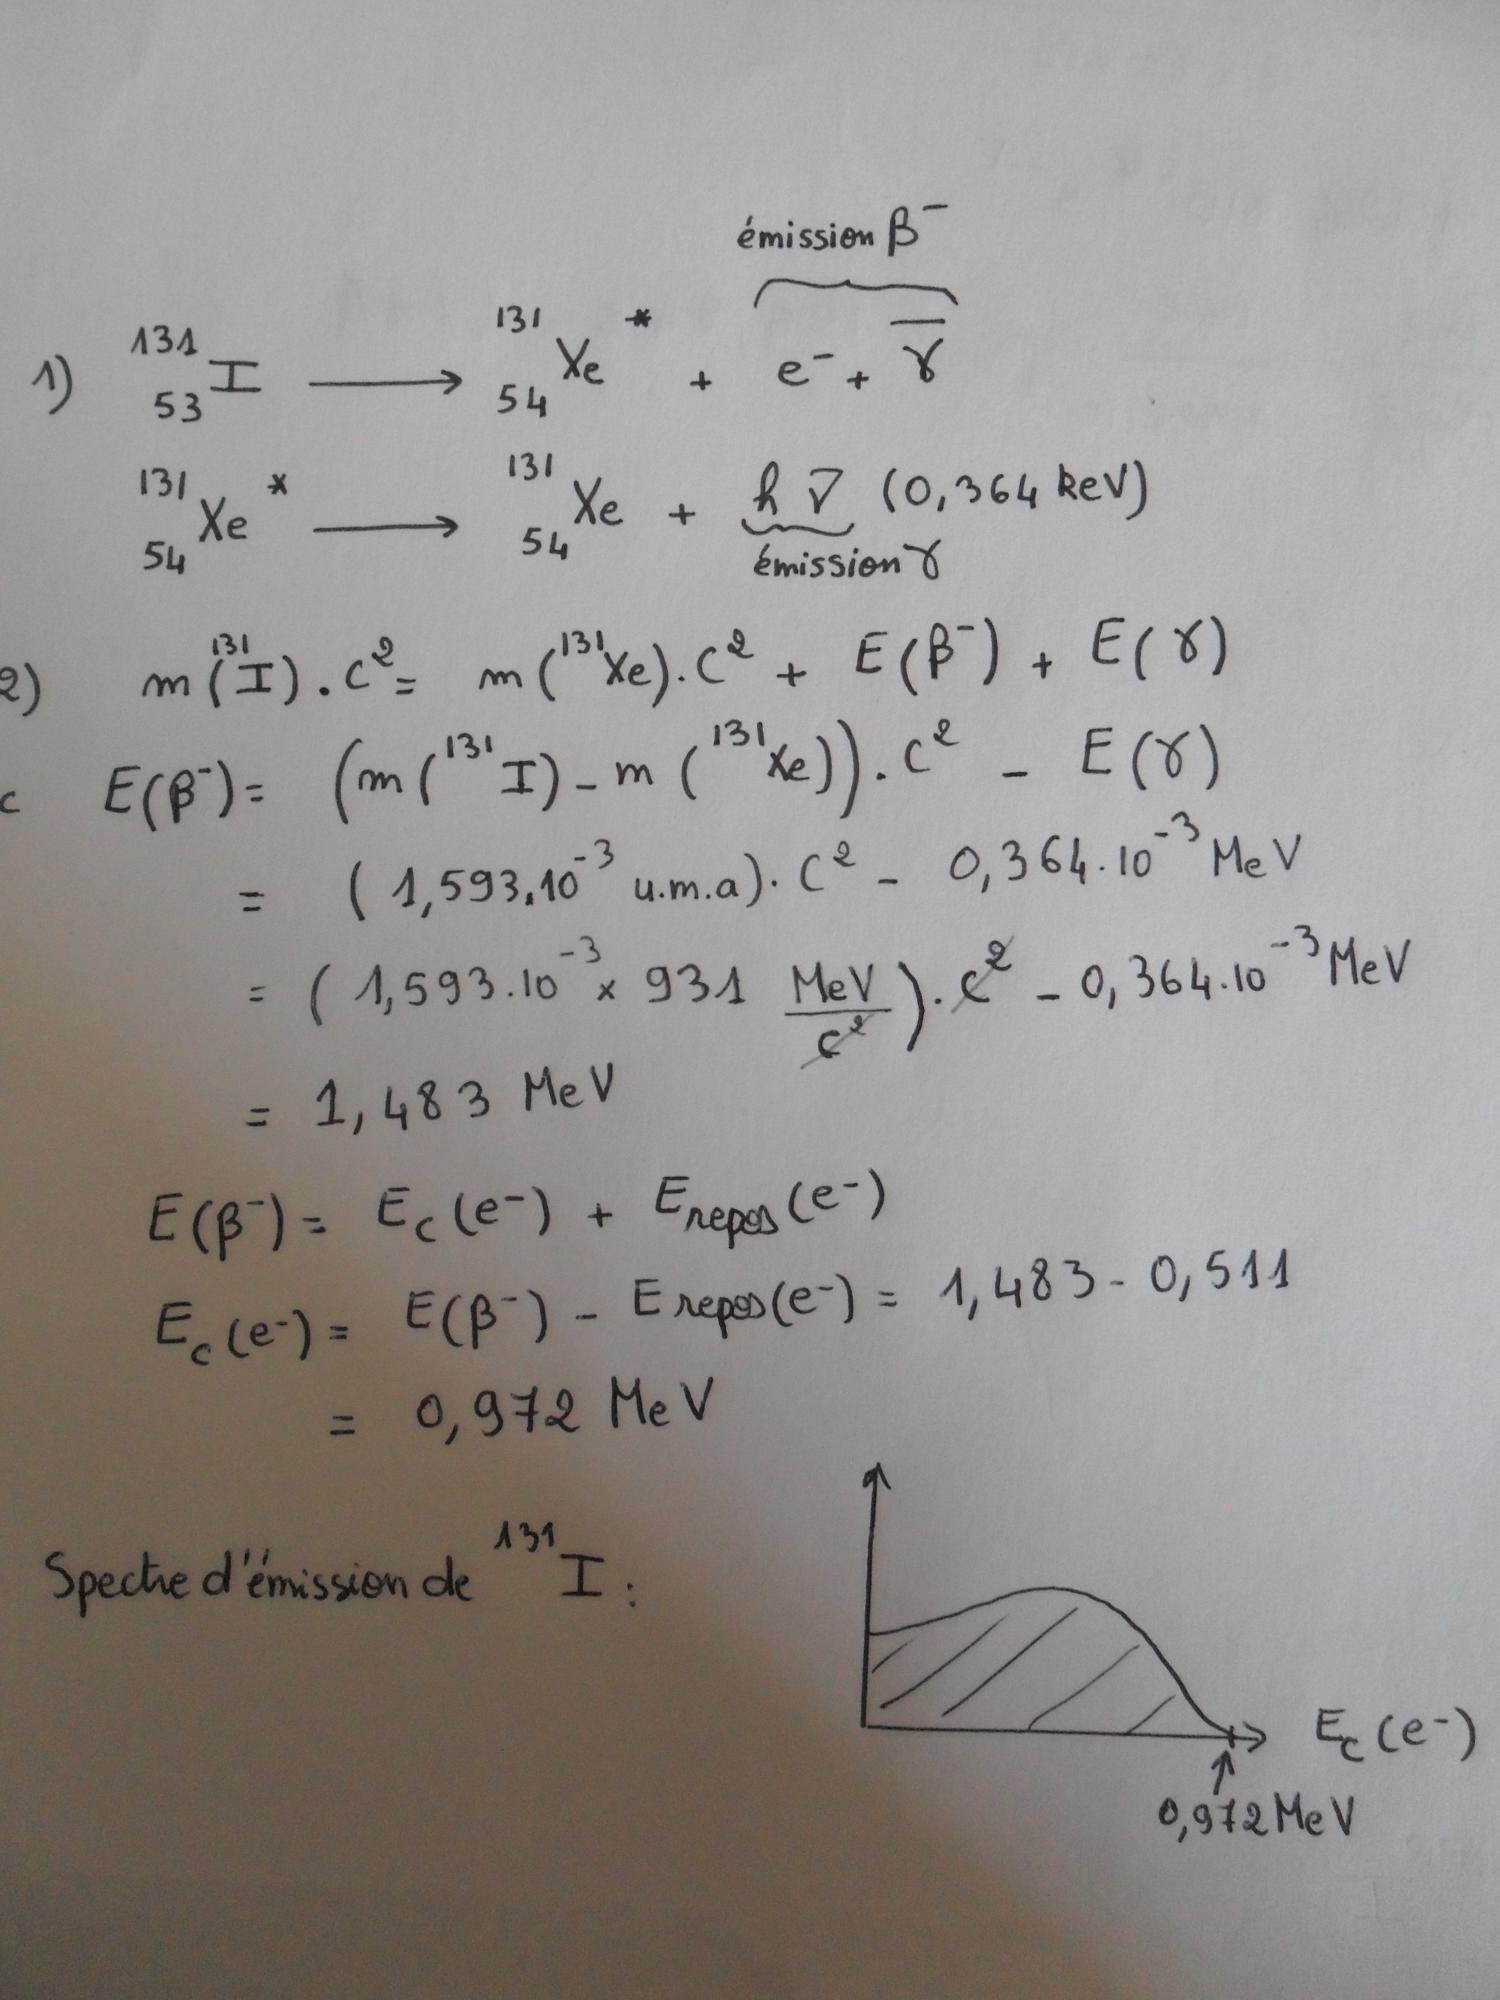 émission β⁻
1) ¹³¹₅₃I ⟶ ¹³¹₅₄Xe* + e⁻ + γ̅
¹³¹₅₄Xe* ⟶ ¹³¹₅₄Xe + hν̅ (0,364 keV)
émission γ
2) m(¹³¹I).C² = m(¹³¹Xe).C² + E(β⁻) + E(γ)
c E(β⁻) = (m(¹³¹I) - m(¹³¹Xe)).C² - E(γ)
= (1,593.10⁻³ u.m.a).C² - 0,364.10⁻³ MeV
= (1,593.10⁻³ × 931 MeV/c²).c² - 0,364.10⁻³ MeV
= 1,483 MeV
E(β⁻) = Ec(e⁻) + Erepos(e⁻)
Ec(e⁻) = E(β⁻) - Erepos(e⁻) = 1,483 - 0,511
= 0,972 MeV
Spectre d'émission de ¹³¹I :
Ec(e⁻)
0,972 MeV